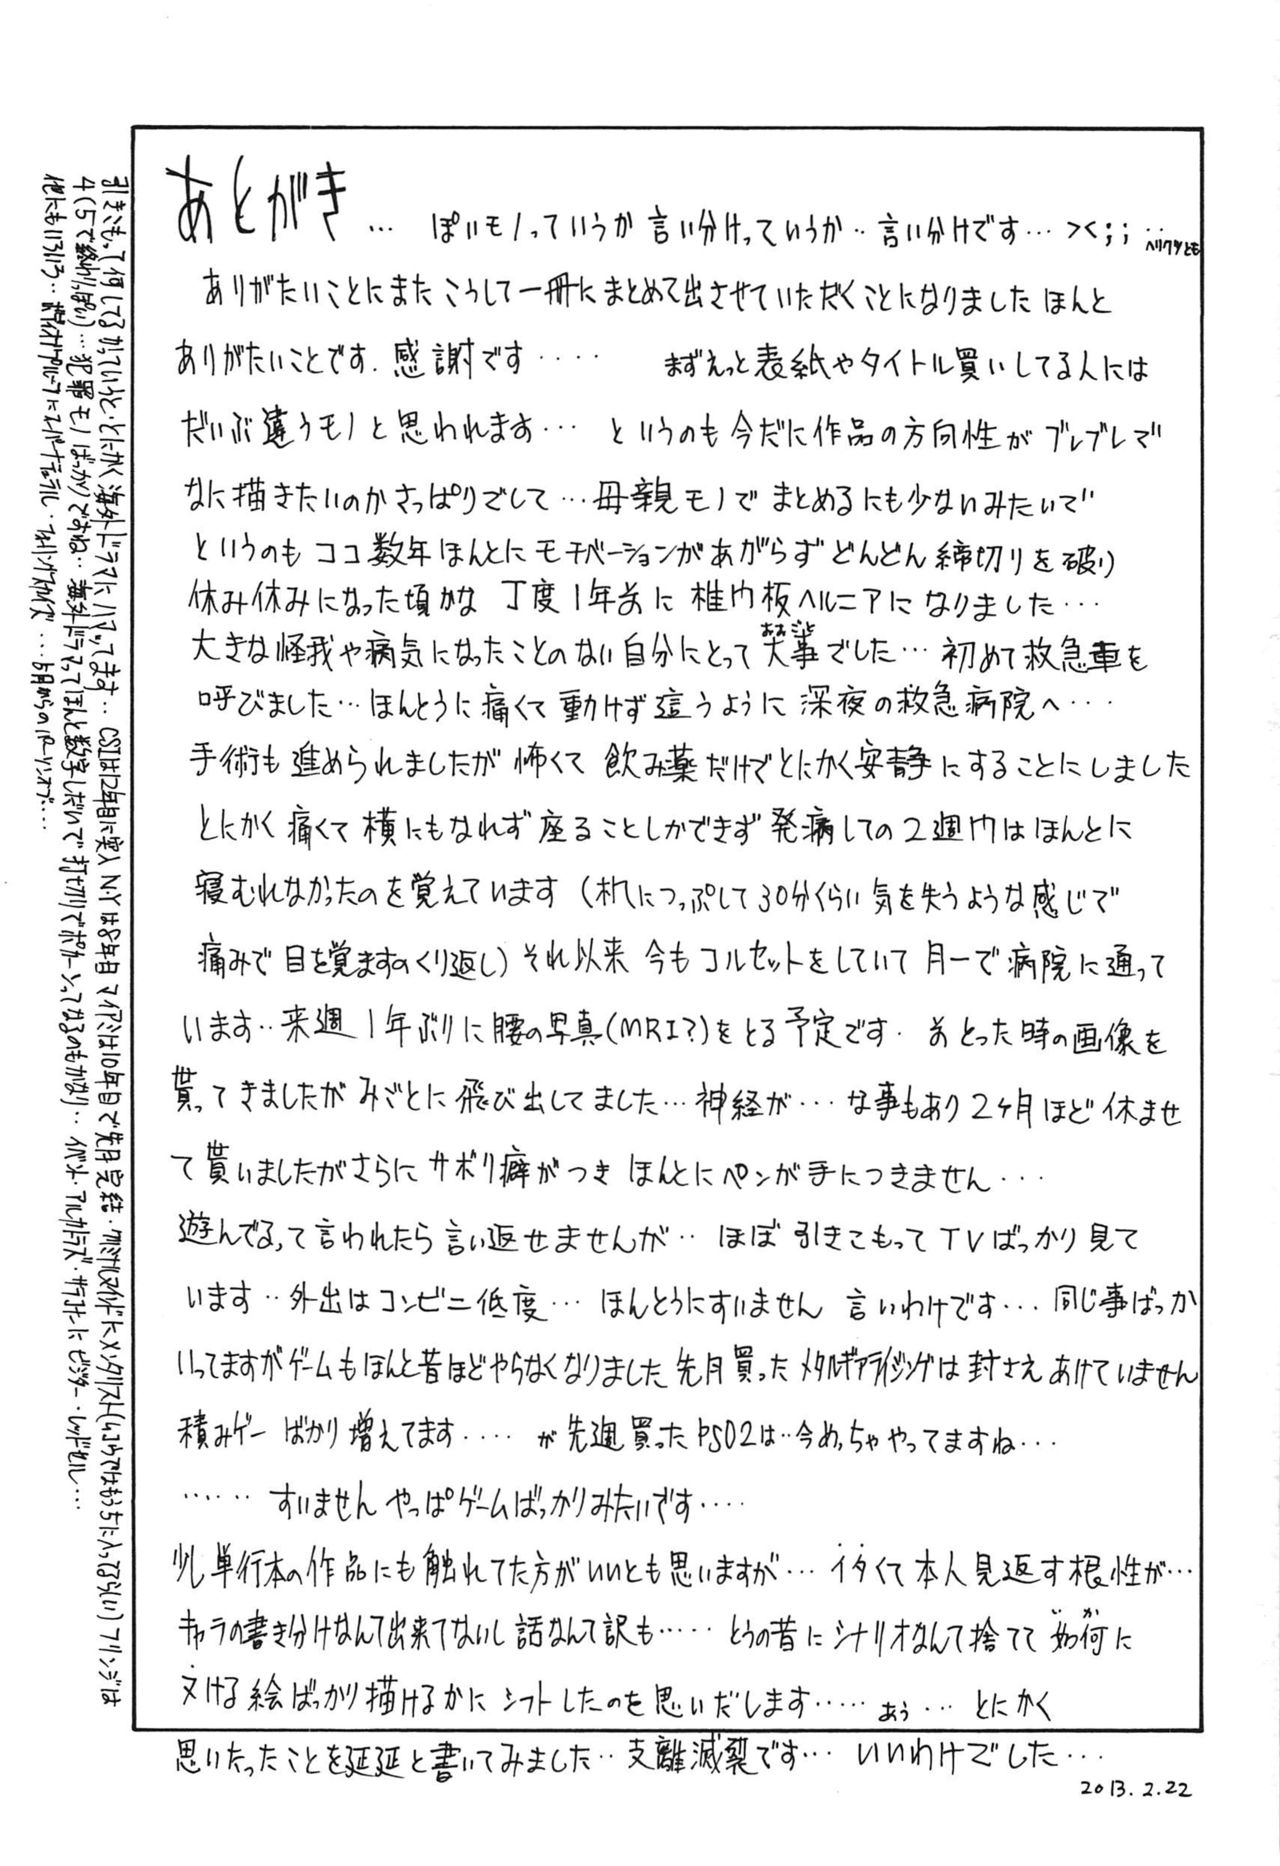 あとがき… ぽいモノっていうか 言い分けっていうか‥言い分けです… ><;;‥
ヘリクツとも
ありがたいことにまた こうして一冊にまとめて出させていただくことになりました ほんと
ありがたいことです.感謝です‥‥ まずえっと表紙やタイトル買いしてる人には
だいぶ違うモノと思われます… というのも今だに作品の方向性が ブレブレで
なに描きたいのかさっぱりでして…母親モノで まとめるにも少ないみたいで
というのも ココ数年ほんとに モチベーションがあがらず どんどん 締切りを破り
休み休みになった頃かな 丁度1年前に 椎間板ヘルニアに なりました…
大きな怪我や病気になったことのない自分にとって 大事でした… 初めて救急車を
おおごと
呼びました…ほんとうに痛くて 動けず 這うように 深夜の救急病院へ…
手術も 進められましたが 怖くて 飲み薬だけでとにかく安静にすることにしました
とにかく 痛くて 横にもなれず 座ることしかできず 発病しての2週間はほんとに
寝むれなかったのを覚えています (机につっぷして30分くらい気を失うような感じで
痛みで 目を覚ますのくり返し) それ以来 今も コルセットをしていて 月一で病院に通って
います‥来週1年ぶりに腰の写真(MRI?)をとる予定です. 前とった時の画像を
貰ってきましたが みごとに 飛び出してました…神経が…な事もあり2ヶ月ほど休ませ
て貰いましたがさらに サボリ癖がつき ほんとにペンが手につきません…
遊んでるって言われたら 言い返せませんが‥ ほぼ 引きこもって TVばっかり見て
います‥外出はコンビニ低度… ほんとうにすいません 言いわけです…同じ事ばっか
いってますがゲームもほんと昔ほどやらなくなりました 先月買った メタルギアライジングは封さえ あけていません
積みゲー ばかり 増えてます‥‥ が 先週買ったPSO2は‥今めっちゃやってますね…
‥‥‥ すいません やっぱゲームばっかりみたいです‥‥
少し単行本の作品にも触れてた方がいいとも思いますが… イタくて本人見返す根性が…
キャラの書き分けなんて出来てないし 話なんて訳も‥‥‥ とうの昔に シナリオなんて捨てて 如何に
いか
ヌける絵ばっかり描けるかに シフトしたのを思いだします‥‥‥ ぁぅ… とにかく
思いたったことを延延と書いてみました‥支離滅裂です… いいわけでした…
2013.2.22
引きこもって何してるかっていうと‥とにかく海外ドラマにハマってます‥ CSIは12年目に突入 NYは8年目 マイアミは10年目で先月完結・クリミナルマインドに メンタリスト(ムコウではもう5に入ってるらしい) フリンジは
4(5で終わりっぽい)…犯罪モノばっかりですね‥海外ドラマってほんと数字しだいで打ち切りでポカーンってなるのもかなり‥イベント・アルカトラズ・テラノバにビジター・レッドセル…
他にもいろいろ‥ スーパーナチュラル・フォーリングスカイズ…5月からのパーソンオブ…